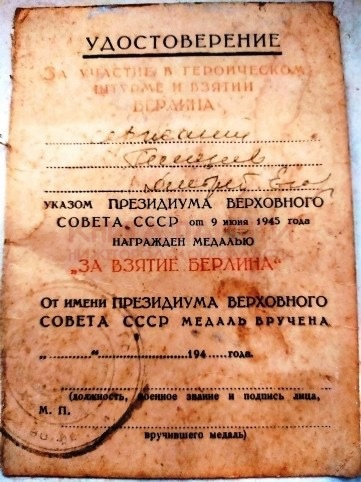 УДОСТОВЕРЕНИЕ
ЗА УЧАСТИЕ В ГЕРОИЧЕСКОМ
ШТУРМЕ И ВЗЯТИИ
БЕРЛИНА
УКАЗОМ ПРЕЗИДИУМА ВЕРХОВНОГО
СОВЕТА СССР от 9 июня 1945 года
НАГРАЖДЕН МЕДАЛЬЮ
„ЗА ВЗЯТИЕ БЕРЛИНА“
От имени ПРЕЗИДИУМА ВЕРХОВНОГО
СОВЕТА СССР МЕДАЛЬ ВРУЧЕНА
„......“..................194.....года.
(должность, военное звание и подпись лица,
М. П.
вручившего медаль)